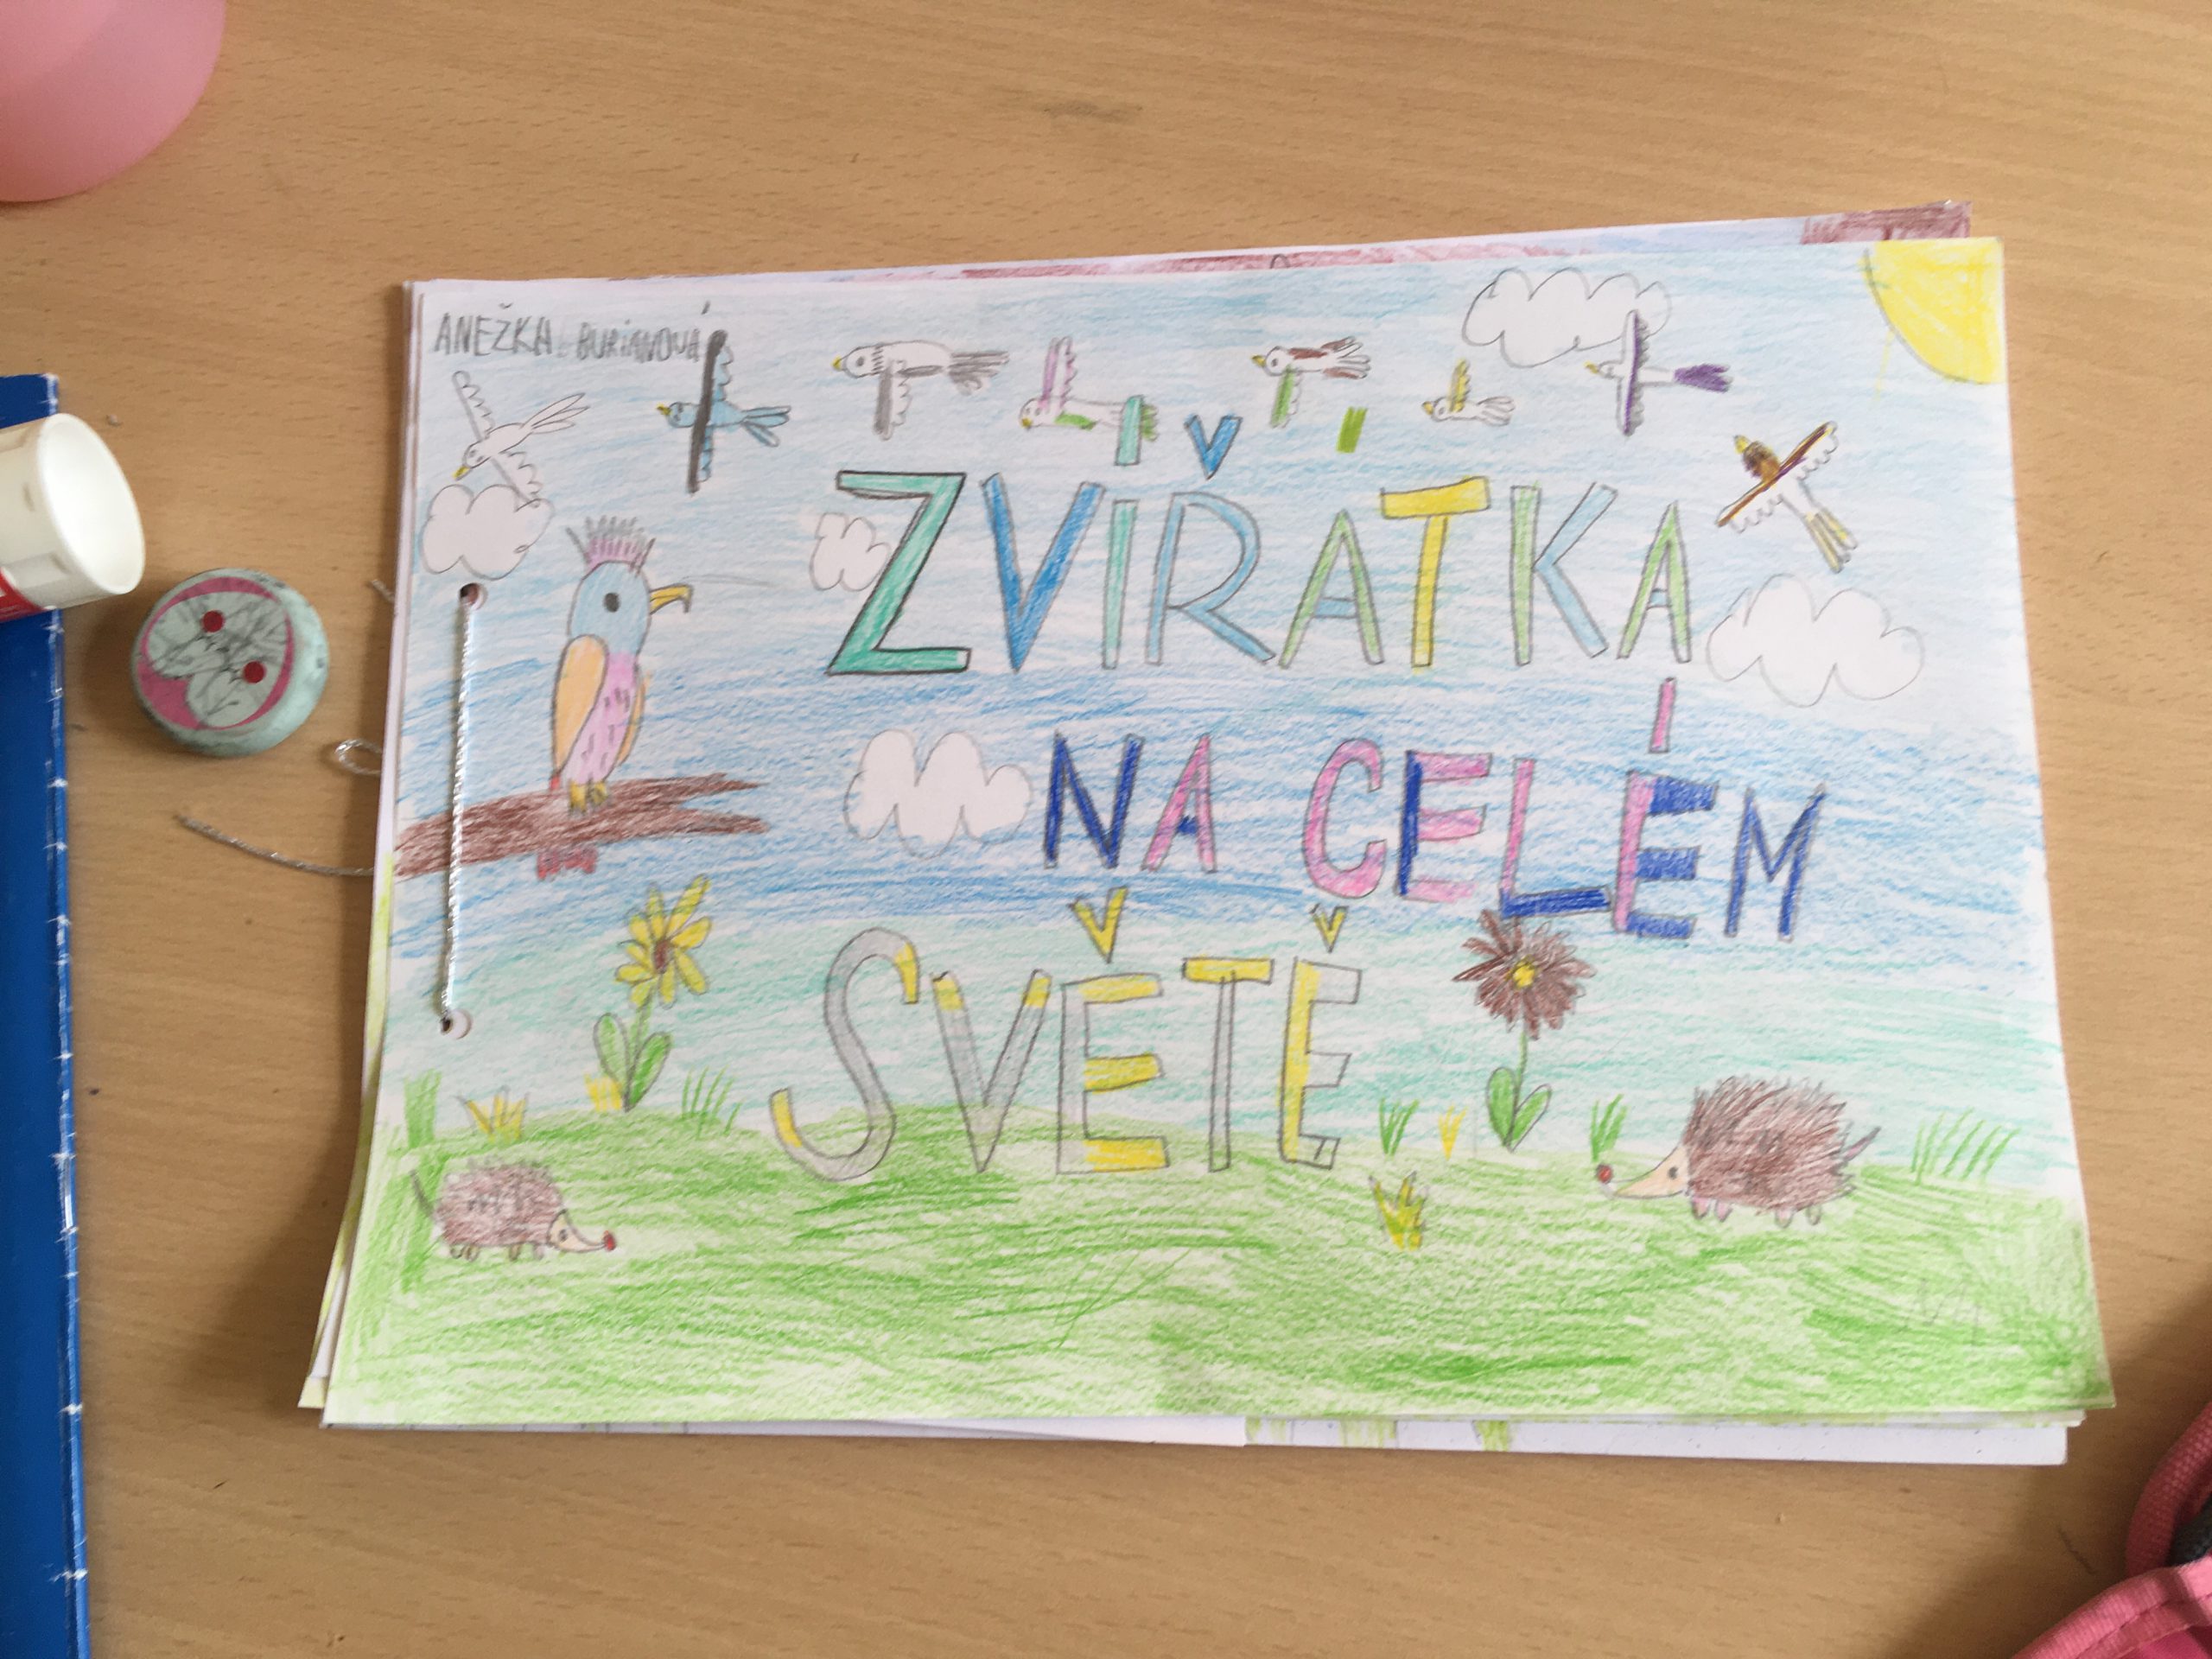 ANEŽKA BURIANOVÁ
ZVÍŘÁTKA
NA CELÉM
SVĚTĚ